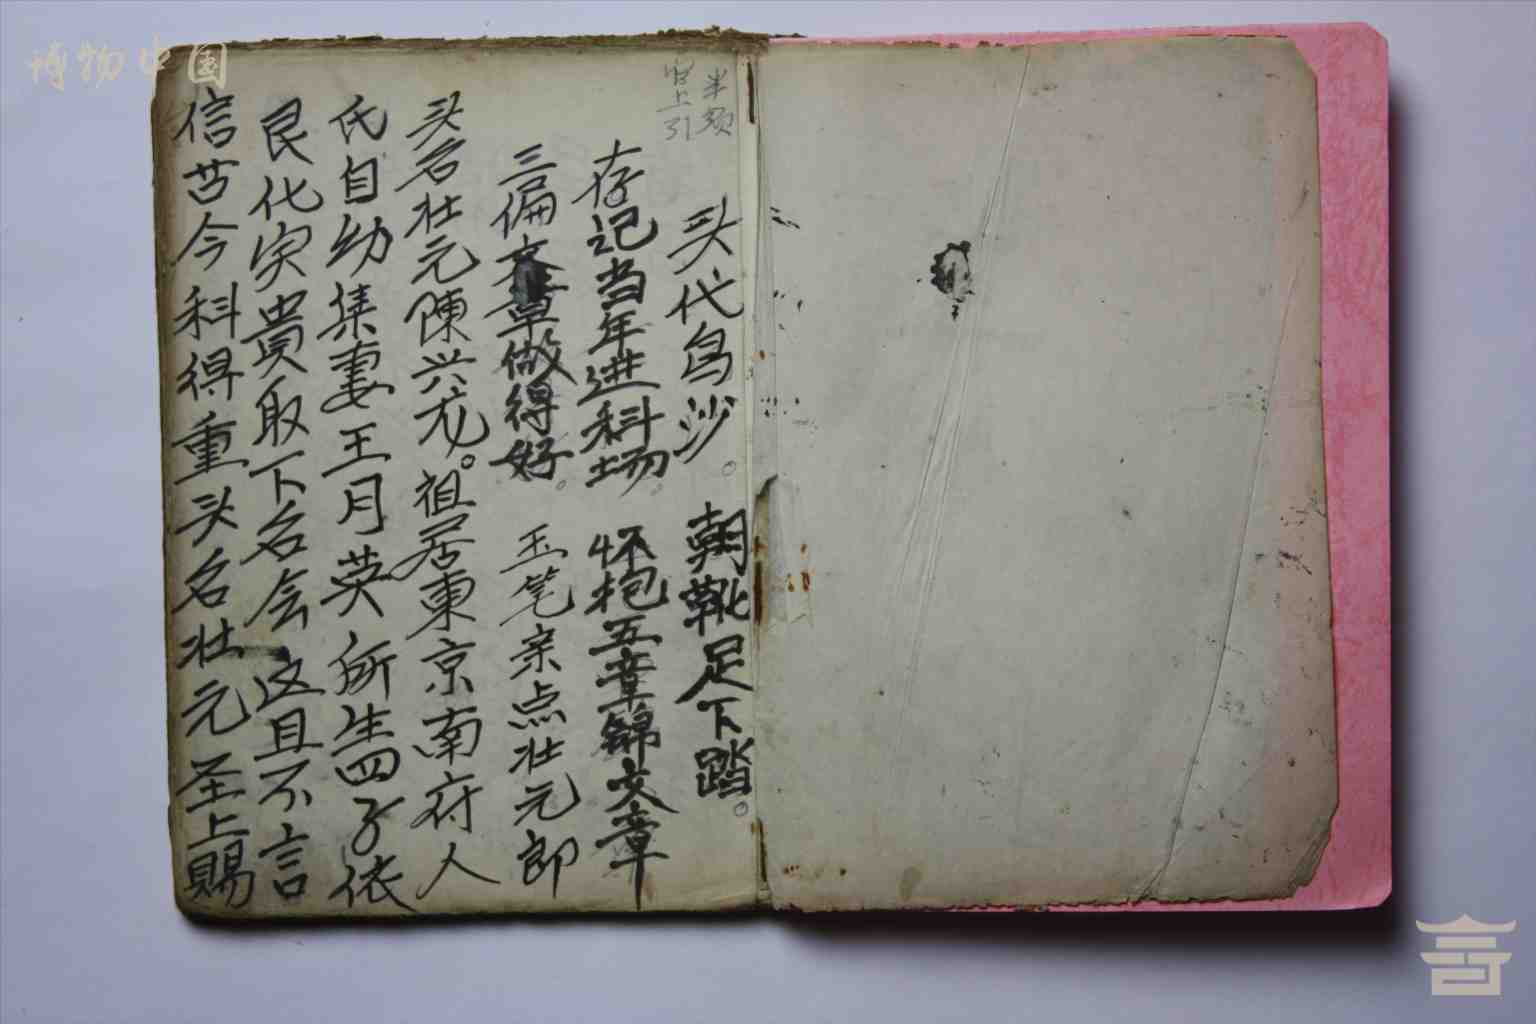 博物中国
半页
官上引
头代乌沙。朝靴足下踏。
存记当年进科场。怀抱五章锦文章
三偏文章做得好。玉笔亲点壮元郎
头名壮元陳兴龙。祖居東京南府人
氏自幼集妻王月英所生四子依
艮化宋貴取下名会这且不言
信苦今科得重头名壮元圣上賜